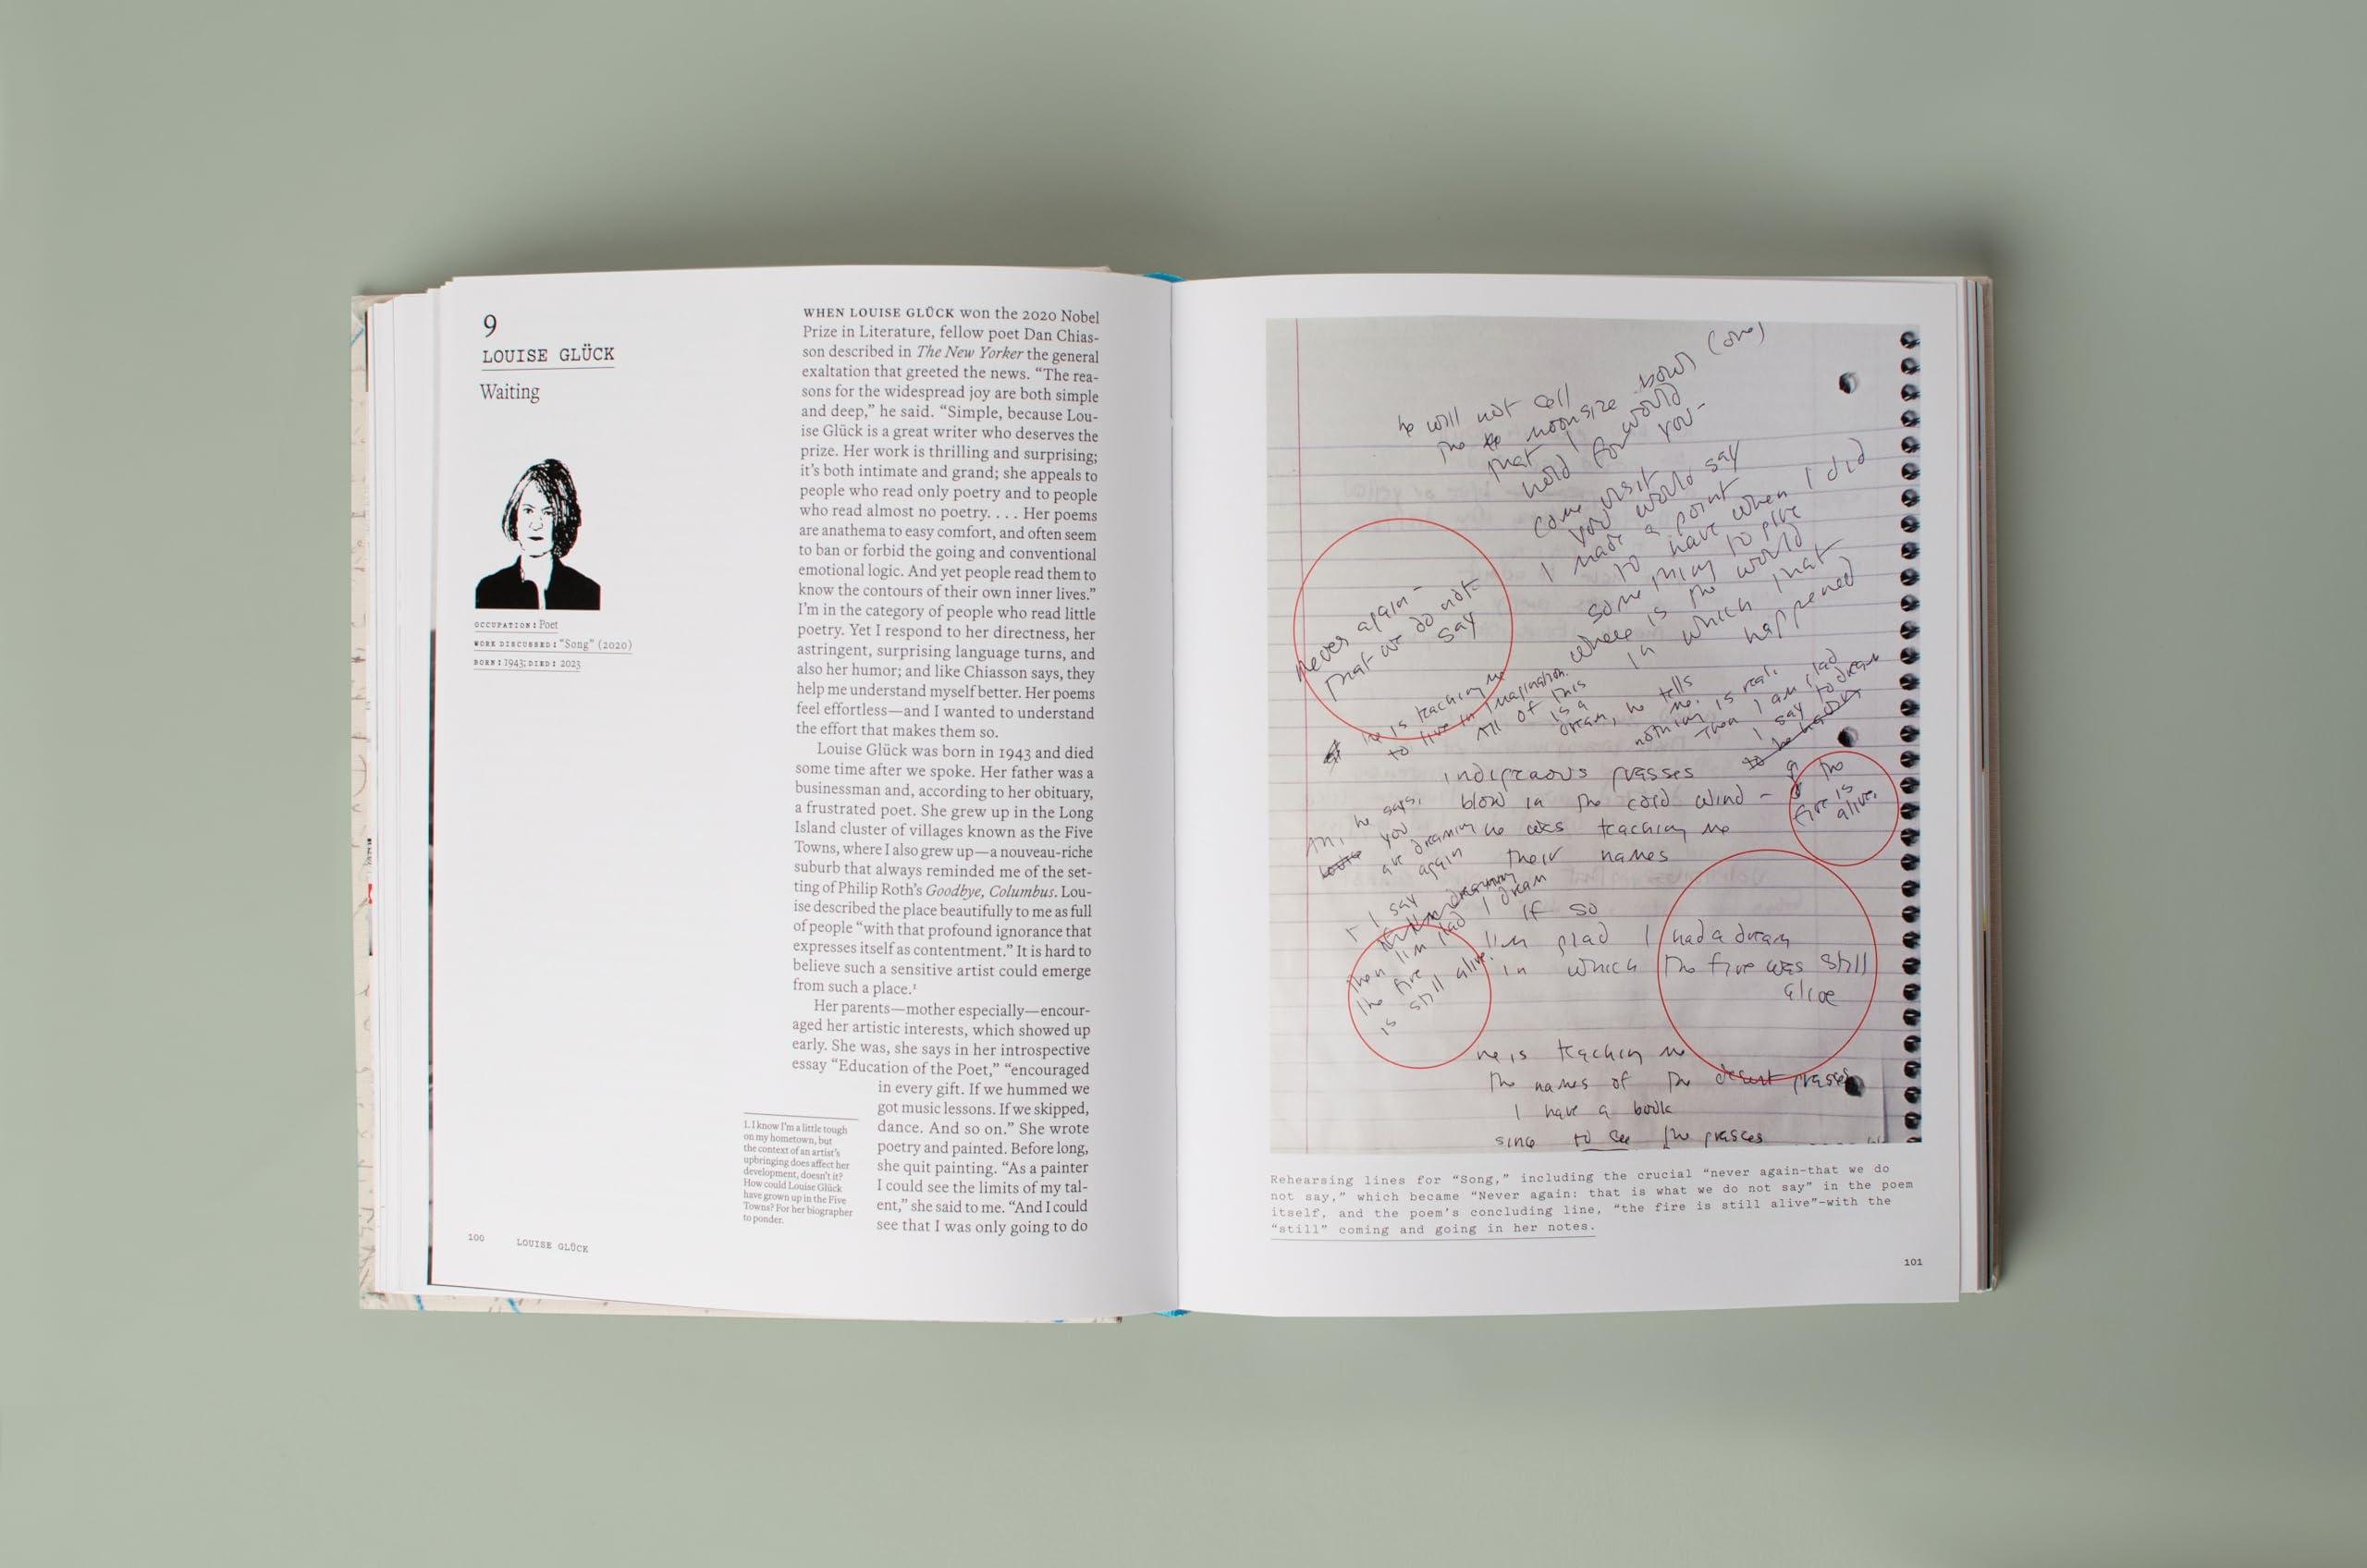 9
LOUISE GLÜCK
Waiting
OCCUPATION: Poet
WORK DISCUSSED: "Song" (2020)
BORN: 1943; DIED: 2023
WHEN LOUISE GLÜCK won the 2020 Nobel
Prize in Literature, fellow poet Dan Chias-
son described in The New Yorker the general
exaltation that greeted the news. “The rea-
sons for the widespread joy are both simple
and deep,” he said. “Simple, because Lou-
ise Glück is a great writer who deserves the
prize. Her work is thrilling and surprising;
it’s both intimate and grand; she appeals to
people who read only poetry and to people
who read almost no poetry. . . . Her poems
are anathema to easy comfort, and often seem
to ban or forbid the going and conventional
emotional logic. And yet people read them to
know the contours of their own inner lives.”
I’m in the category of people who read little
poetry. Yet I respond to her directness, her
astringent, surprising language turns, and
also her humor; and like Chiasson says, they
help me understand myself better. Her poems
feel effortless—and I wanted to understand
the effort that makes them so.
Louise Glück was born in 1943 and died
some time after we spoke. Her father was a
businessman and, according to her obituary,
a frustrated poet. She grew up in the Long
Island cluster of villages known as the Five
Towns, where I also grew up—a nouveau-riche
suburb that always reminded me of the set-
ting of Philip Roth’s Goodbye, Columbus. Lou-
ise described the place beautifully to me as full
of people “with that profound ignorance that
expresses itself as contentment.” It is hard to
believe such a sensitive artist could emerge
from such a place.¹
Her parents—mother especially—encour-
aged her artistic interests, which showed up
early. She was, she says in her introspective
essay “Education of the Poet,” “encouraged
in every gift. If we hummed we
got music lessons. If we skipped,
dance. And so on.” She wrote
poetry and painted. Before long,
she quit painting. “As a painter
I could see the limits of my tal-
ent,” she said to me. “And I could
see that I was only going to do
1. I know I’m a little tough
on my hometown, but
the context of an artist’s
upbringing does affect her
development, doesn’t it?
How could Louise Glück
have grown up in the Five
Towns? For her biographer
to ponder.
100 LOUISE GLÜCK
he will not sell
the moonsize bowl (one)
that I would
hold for you-
come visit
you would say
I made a point
to have when I did
something to give
where is the world
in which that
happened
never again-
that we do not
say
he is teaching me
to live in imagination.
All of this
is a
dream, he tells
me. nothing is real.
Then I am glad
I say to dream
indigenous grasses
blow in the cold wind -
he was teaching me
their names
the
fire is
alive.
Ah, he says,
you
are dreaming
again
- I say
then I'm glad I dream
the fire
is still alive.
if so
I'm glad I had a dream
in which the fire was still
alive
he is teaching me
the names of the desert grasses
I have a book
since to see the grasses
Rehearsing lines for “Song,” including the crucial “never again—that we do
not say,” which became “Never again: that is what we do not say” in the poem
itself, and the poem’s concluding line, “the fire is still alive”—with the
“still” coming and going in her notes.
101